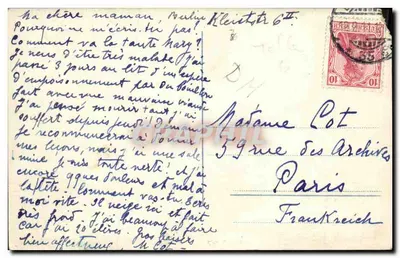 Ma chère maman, Berlin Kleiststr 6 III
Pourquoi ne m'écris-tu pas?
Comment va la tante Mary?
Je viens d'être très malade, j'ai
passé 3 jours au lit d'une espèce
d'empoisonnement par du bouillon
fait avec une mauvaise viande
J'ai pensé mourir tant j'ai
souffert depuis jeudi. Demain
je recommencerai à donner
mes leçons, mais j'ai une sale
mine je suis toute verte! et j'ai
encore qques douleurs et mal à
la tête! Comment vas-tu? Écris
moi vite. Il neige ici et fait
très froid. J'ai beaucoup à faire
car j'ai 20 élèves. Gros baisers
bien affectueux. M Cot
10 10
Madame Cot
59 rue des Archives
Paris
Frankreich